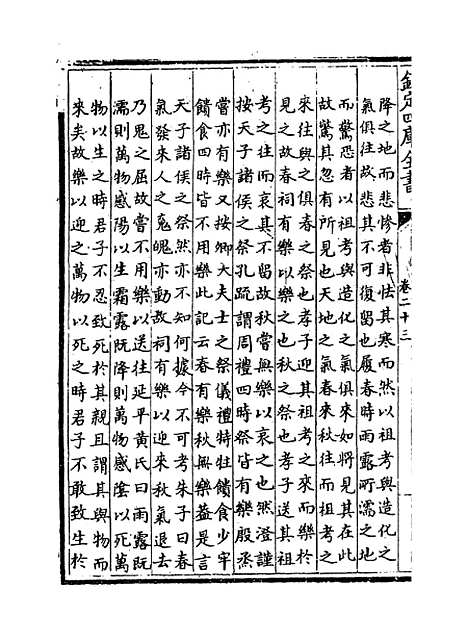 欽定四庫全書
卷二十三
降之地而悲慘者非怯其寒而然以祖考與造化之
氣俱往故悲其不可復留也履春時雨露所濡之地
而驚恐者以祖考與造化之氣俱來如將見其在此
故驚其忽有所見也天地之氣春來秋往而祖考之
來往與之俱春之祭也孝子迎其祖考之來而樂於
見之故春祠有樂以樂之也秋之祭也孝子送其祖
考之往而哀其不留故秋嘗無樂以哀之也然澄謹
按天子諸侯之祭孔疏謂周禮四時祭皆有樂殷烝
嘗亦有樂又按卿大夫士之祭儀禮特牲饋食少牢
饋食四時皆不用樂此記云春有樂秋無樂葢是言
天子諸侯之祭然亦不知何據今不可考朱子曰春
氣發來人之䰟魄亦動故祠有樂以迎來秋氣退去
乃鬼之屈故嘗不用樂以送往延平黄氏曰雨露既
濡則萬物感陽以生霜露既降則萬物感陰以死萬
物以生之時君子不忍致死於其親且謂其與物而
來矣故樂以迎之萬物以死之時君子不敢致生於